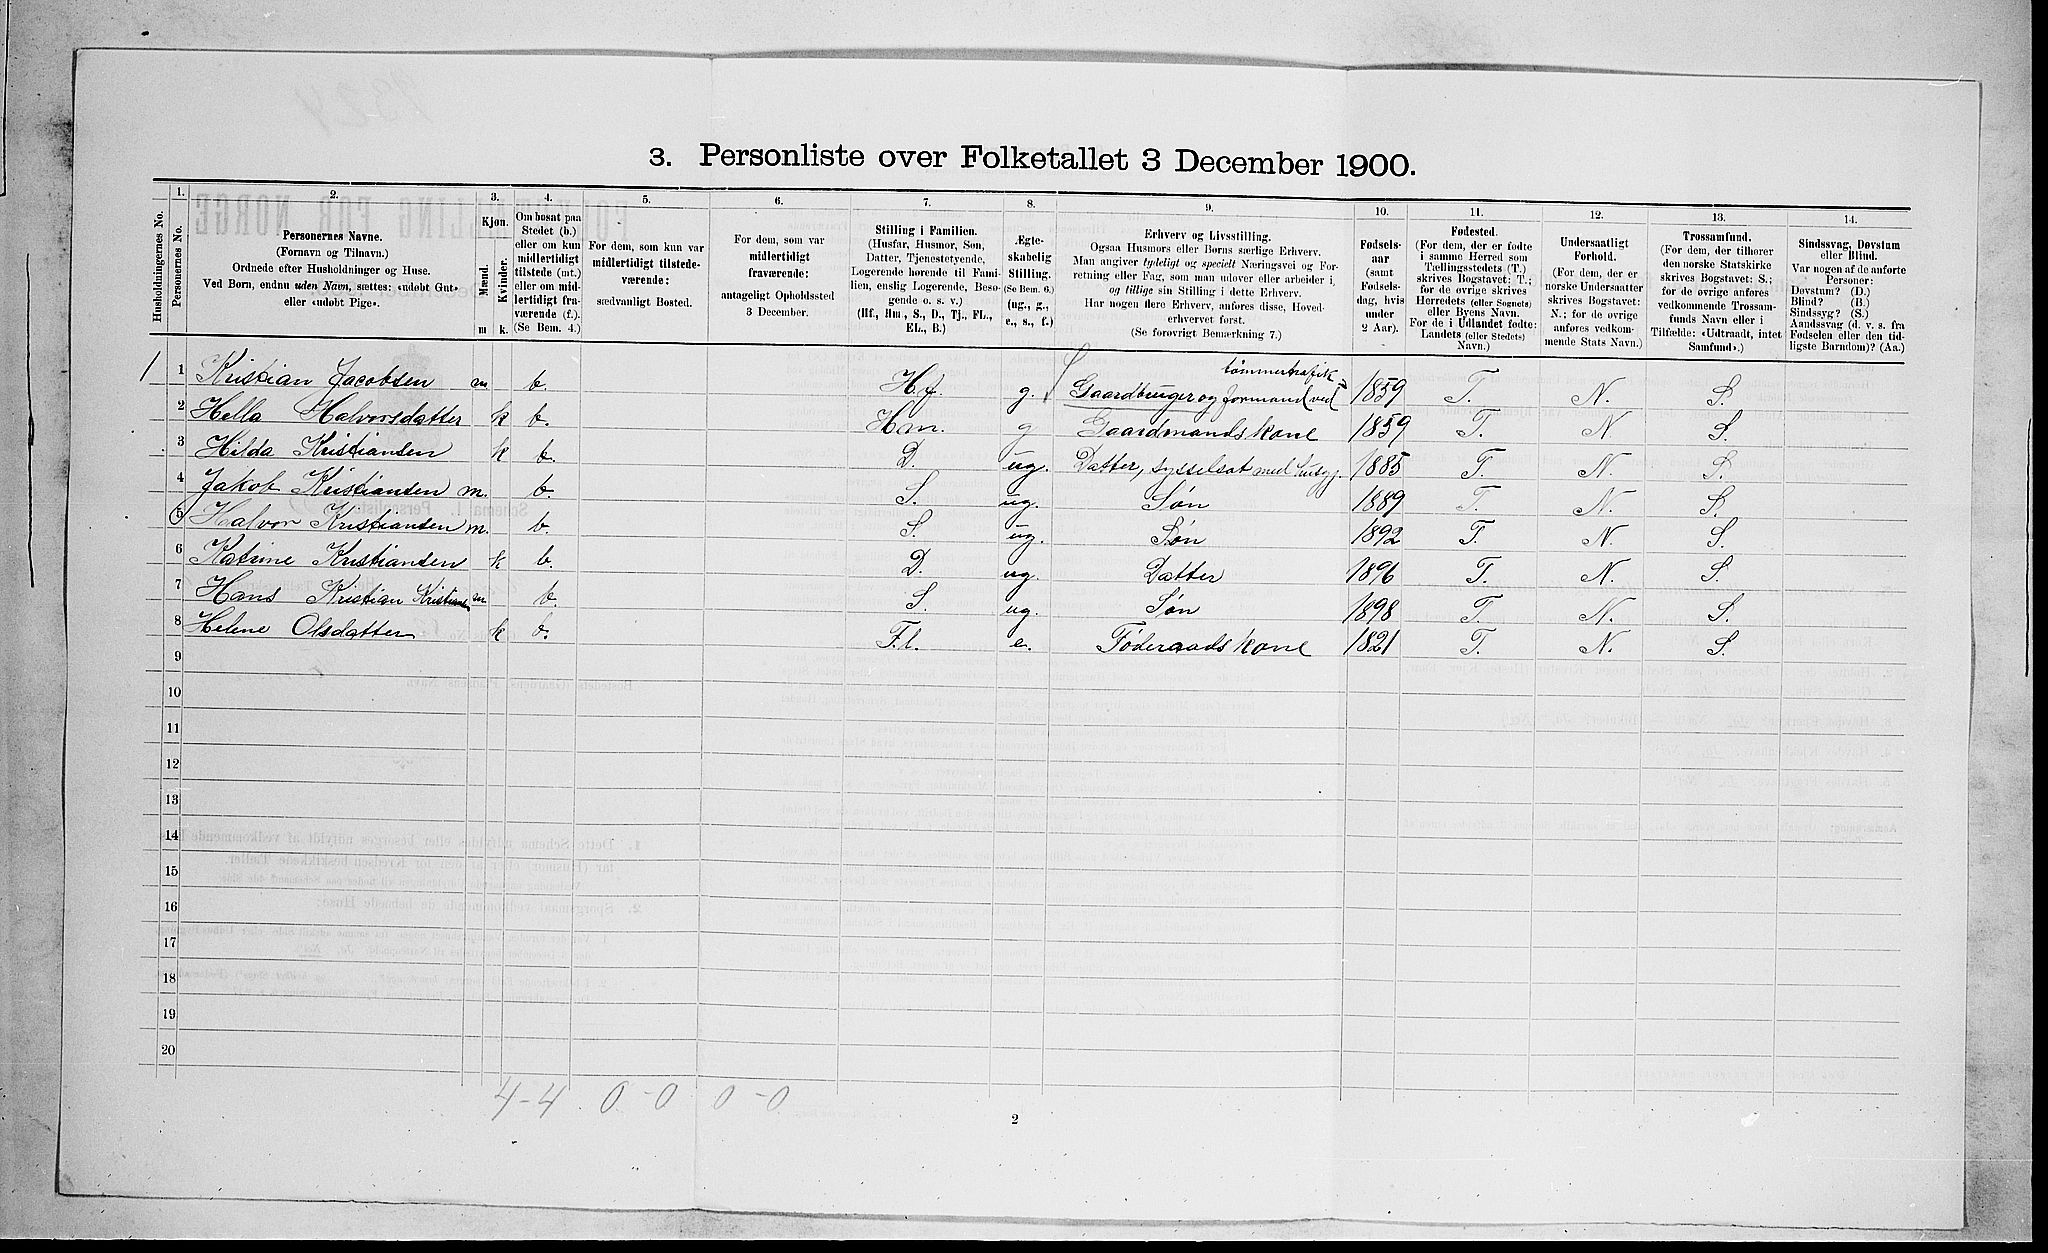 3. Personliste over Folketallet 3 December 1900.
1. 2. 3. 4. 5. 6. 7. 8. 9. 10. 11. 12. 13. 14.
Husholdningernes No.
Personernes No.
Personernes Navne.
(Fornavn og Tilnavn.)
Ordnede efter Husholdninger og Huse.
Ved Børn, endnu uden Navn, sættes: «udøbt Gut»
eller «udøbt Pige».
Kjøn.
Mænd.
Kvinder.
m k.
Om bosat paa
Stedet (b.)
eller om kun
midlertidigt
tilstede (mt.)
eller om mid-
lertidigt fra-
værende (f.).
(Se Bem. 4.)
For dem, som kun var
midlertidigt tilstede-
værende:
sædvanligt Bosted.
For dem, som var
midlertidigt
fraværende:
antageligt Opholdssted
3 December.
Stilling i Familien.
(Husfar, Husmor, Søn,
Datter, Tjenestetyende,
Logerende hørende til Fami-
lien, enslig Logerende, Besø-
gende o. s. v.)
(Hf., Hm., S., D., Tj., FL.,
EL., B.)
Ægte-
skabelig
Stilling.
(Se Bem. 6.)
(ug., g.,
e., s., f.)
Erhverv og Livsstilling.
Ogsaa Husmors eller Børns særlige Erhverv.
Man angiver tydeligt og specielt Næringsvei og For-
retning eller Fag, som man udøver eller arbeider i,
og tillige sin Stilling i dette Erhverv.
Har nogen flere Erhverv, anføres disse, Hoved-
erhvervet først.
(Se forøvrigt Bemærkning 7.)
Fødsels-
aar
(samt
Fødsels-
dag, hvis
under
2 Aar).
Fødested.
(For dem, der er fødte
i samme Herred som
Tællingsstedets (T.)
skrives Bogstavet: T.;
for de øvrige skrives
Herredets (eller Sognets)
eller Byens Navn.
For de i Udlandet fødte:
Landets (eller Stedets)
Navn.)
Undersaatligt
Forhold.
(For dem, der er
norske Undersaatter
skrives Bogstavet:
N.; for de øvrige
anføres vedkom-
mende Stats Navn.)
Trossamfund.
(For dem, der tilhører
den norske Statskirke
skrives Bogstavet: S.;
for de øvrige anføres
vedkommende Trossam-
funds Navn eller i
Tilfælde: «Udtraadt, intet
Samfund».)
Sindssvag, Døvstum
eller Blind.
Var nogen af de anførte
Personer:
Døvstum? (D.)
Blind? (B.)
Sindssyg? (S.)
Aandssvag (d. v. s. fra
Fødselen eller den tid-
ligste Barndom)? (Aa.)
tømmertrafik
1 1 Kristian Jacobsen m b. H.f. g. Gaardbruger og formand (ved 1859 T. N. S.
2 Hella Halvorsdatter k b. Hm. g Gaardmandskone 1859 T. N S.
3 Hilda Kristiansen k b. D. ug. Datter, sysselsat med husgj. 1885 T. N. S.
4 Jakob Kristiansen m. b. S. ug. Søn 1889 T. N. S.
5 Halvor Kristiansen m. b. S. ug. Søn 1892 T. N. S.
6 Katrine Kristiansen k b. D. ug. Datter 1896 T. N. S.
7 Hans Kristian Kristians. m b. S. ug. Søn 1898 T. N. S.
8 Helene Olsdatter k b. F.l. e. Føderaadskone 1821 T. N. S.
9
10
11
12
13
14
15
16
17
18
19
20
4-4 0-0 0-0
2